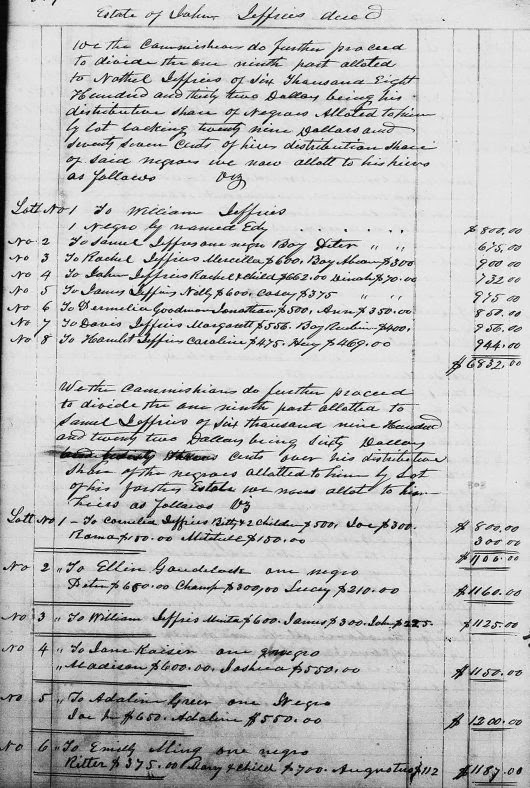 Estate of John Jeffries decd
We the Commishioners do further proceed
to divide the one ninth part alloted
to Nathel Jeffries of Six Thousand Eight
Hundred and thirty two Dollars being his
distributive share of Negroes Alloted to him
by lot lacking twenty nine Dollars and
Seventy Seven Cents of hires distribution Share
of said negroes we now allott to his heirs
as follows Viz
Lott No 1 To William Jeffries
1 Negro by named Edy $800.00
No 2 To Samuel Jeffries one negro Boy Peter " " 675.00
No 3 To Rachel Jeffries Mercilla $600. Boy $300 900 00
No 4 To John Jeffries Rachel & child $662.00 Dinah $70.00 732 00
No 5 To James Jeffries Nelly $600. Casey $375 " " 975 00
No 6 To Permelia Goodwon Jonathan $500, Ann $350.00 850.00
No 7 To Davis Jeffries Margarett $556. Boy Reubin $400. 956.00
No 8 To Hamlet Jeffries Caroline $475. Hiry $469.00 944.00
$6832.00
We the Commishioners do further proceed
to divide the one ninth part allotted to
Samuel Jeffries of Six thousand nine Hundred
and twenty two Dollars being Sixty Dollars
and Cents over his distributive
Share of the negroes allotted to him by Lot
of his farther Estate we now allot to his
heirs as follows Vz
Lott No 1 - To Cornelia Jeffries Bitty & 2 Children $500, Joe $300. $800.00
Roma $150.00 Mitchell $150.00 300 00
$1100.00
No 2 " To Ellin Gaudelock one negro
Peter $650.00 Champ $300,00 Lucey $210.00 $1160.00
No 3 " To William Jeffries Minta $600. James $300. John $225. $1125.00
No 4 " To Jane Kaiser one negro
" Madison $600.00. Joshua $550.00 $1150.00
No 5 " To Adaline Greer one Negro
Joe Jr $650. Adaline $550.00 $1200.00
No 6 " To Emily Ming one negro
Ritter $375.00 Mary & Child $700. Augustus $112 $1187.00